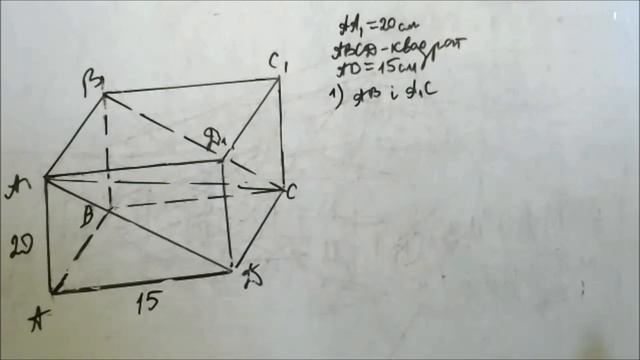 AA₁ = 20 см
ABCD - квадрат
AD = 15 см
1) AB і A₁C
B₁
C₁
D₁
A₁
B
C
20
D
15
A